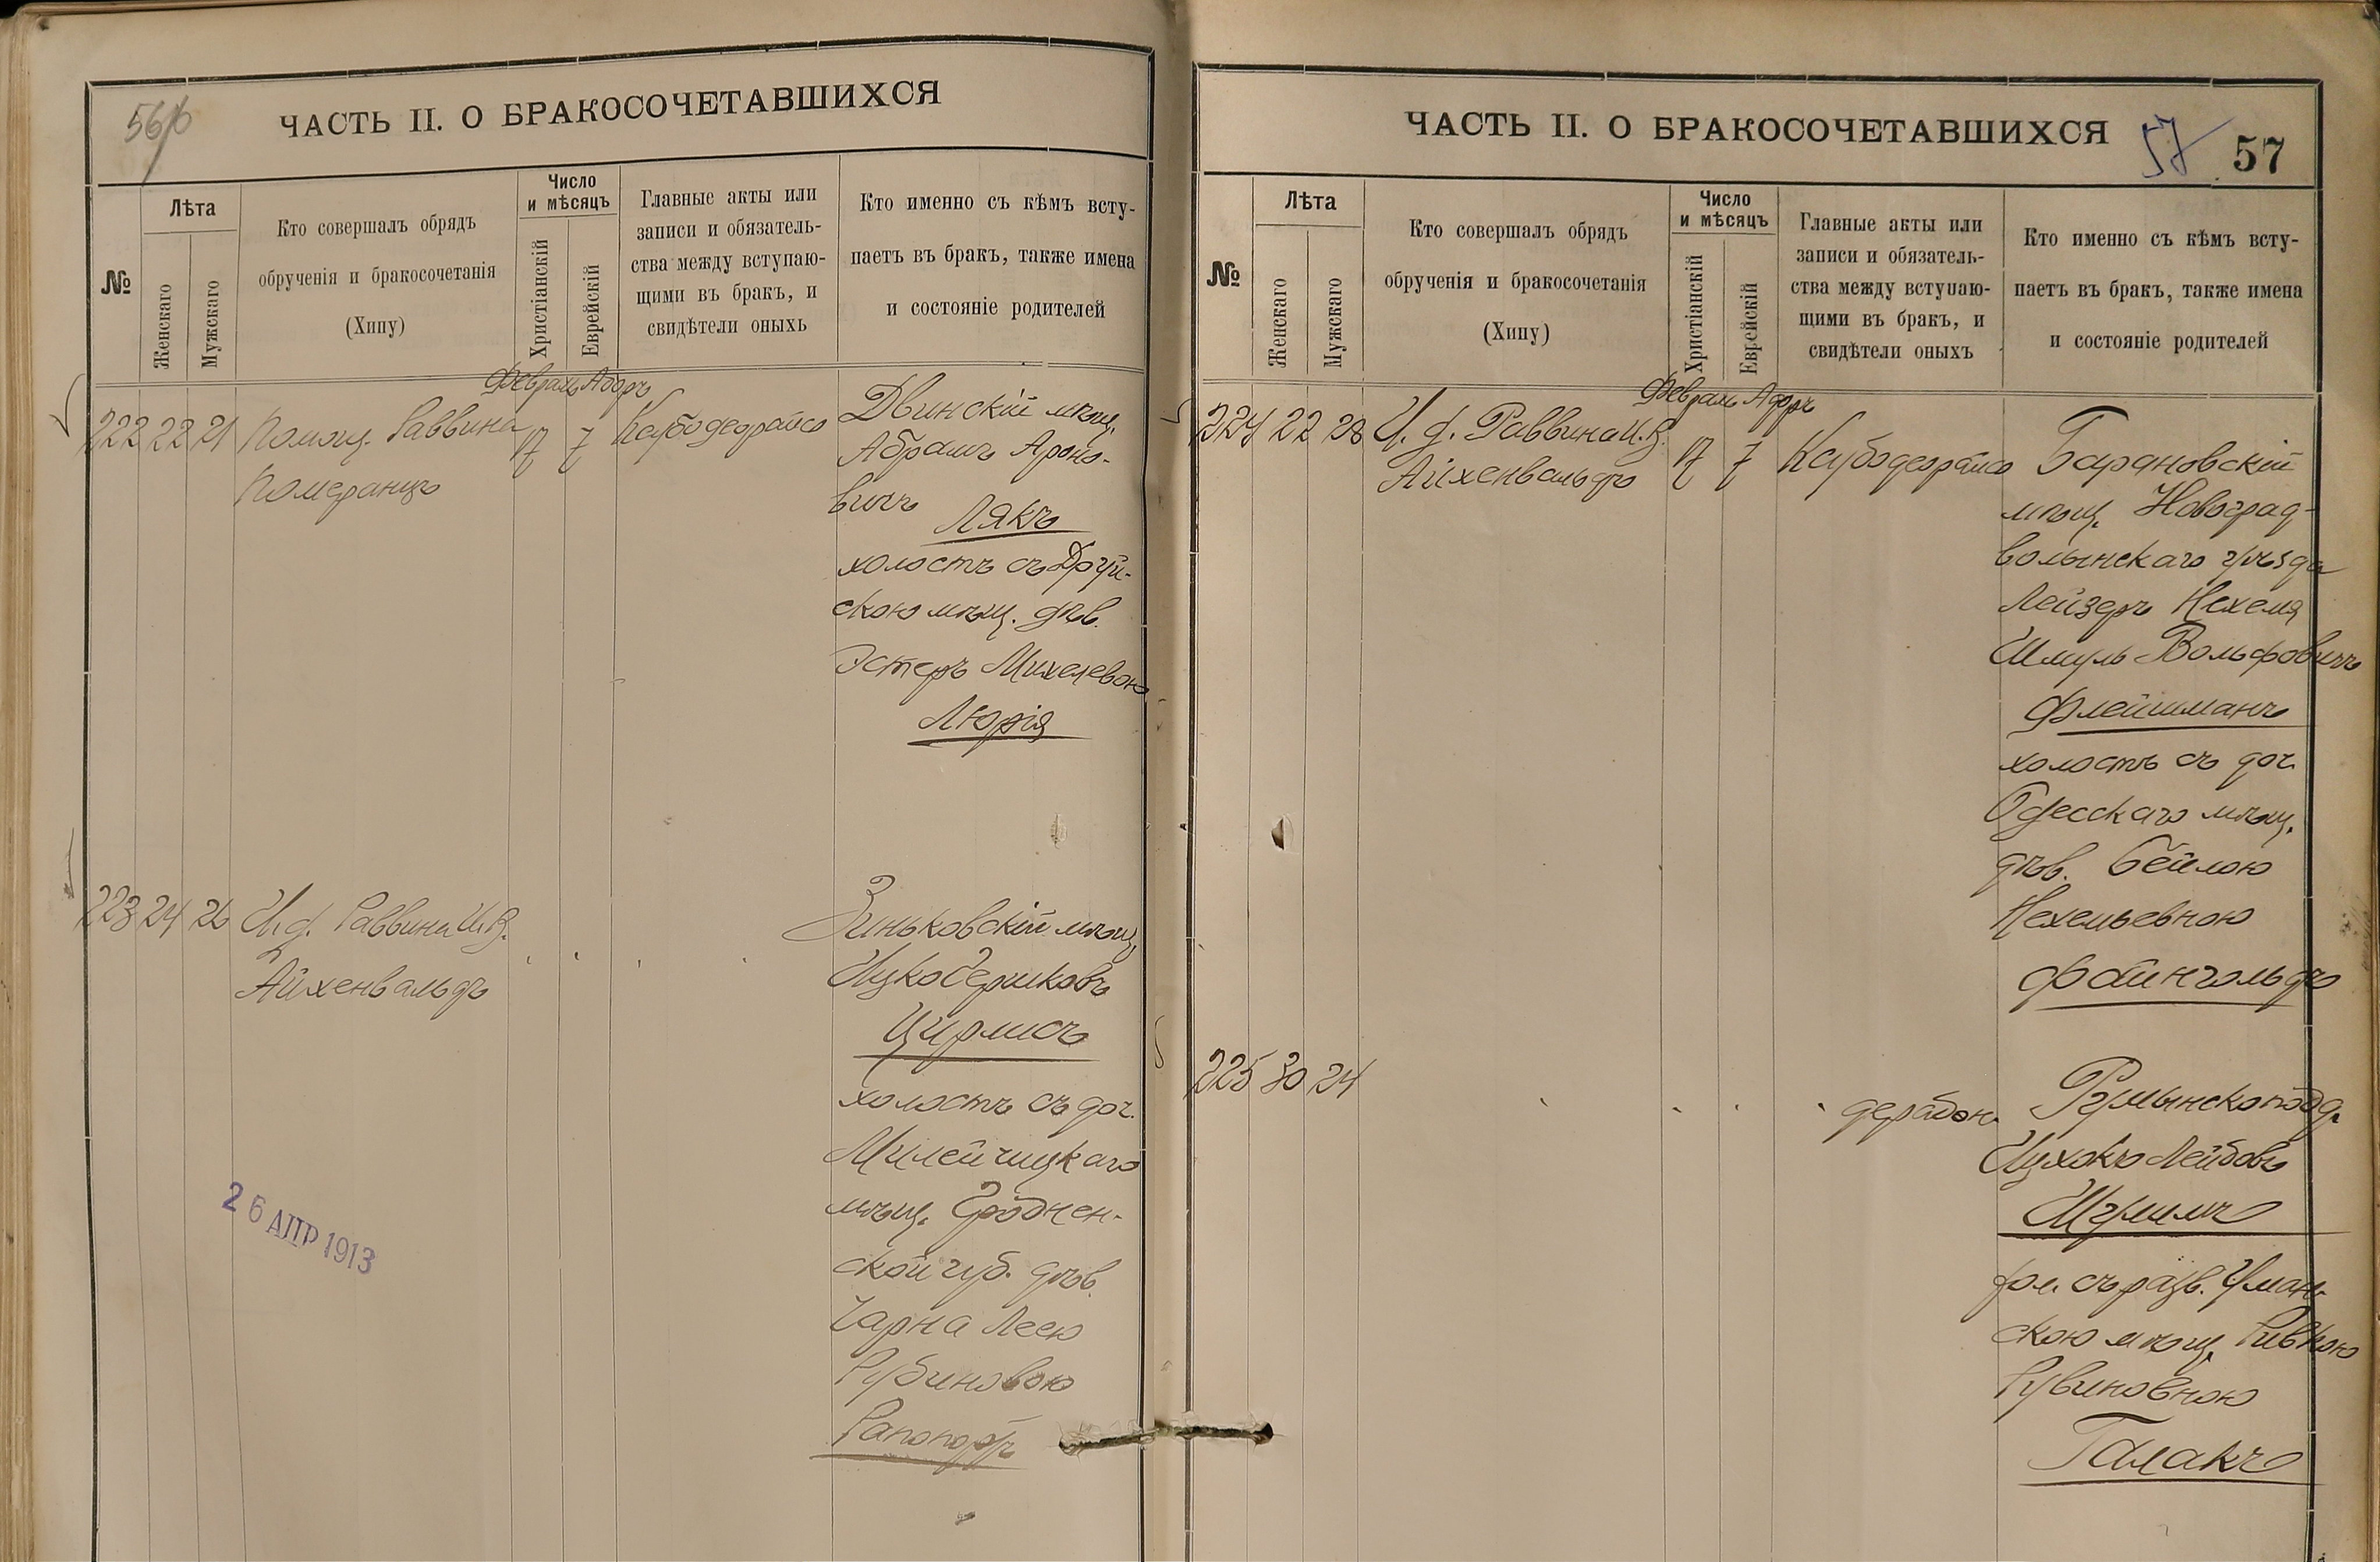 56/б
ЧАСТЬ II. О БРАКОСОЧЕТАВШИХСЯ
№
Лѣта
Женскаго
Мужскаго
Кто совершалъ обрядъ
обрученія и бракосочетанія
(Хипу)
Число
и мѣсяцъ
Христіанскій
Еврейскій
Главные акты или
записи и обязатель-
ства между вступаю-
щими въ бракъ, и
свидѣтели оныхъ
Кто именно съ кѣмъ всту-
паетъ въ бракъ, также имена
и состояніе родителей
Февраль Адаръ
222 22 21 Помощ. Раввина
Померанцъ
7
Двинскій мѣщ.
Абрамъ Ароно-
вичъ Лякъ
холостъ съ Друй-
скою мѣщ. дѣв.
Эстеръ Михелевою
Люрія
223 24 26 И. д. Раввина И. В.
Айхенвальдъ
Зиньковскій мѣщ.
Ицко Бериковъ
Цирлисъ
холостъ съ доч.
Милейчицкаго
мѣщ. Гроднен-
ской губ. дѣв.
Чарна Леею
Рубиновою
Рапопортъ
26 АПР 1913
ЧАСТЬ II. О БРАКОСОЧЕТАВШИХСЯ
57 57
№
Лѣта
Женскаго
Мужскаго
Кто совершалъ обрядъ
обрученія и бракосочетанія
(Хипу)
Число
и мѣсяцъ
Христіанскій
Еврейскій
Главные акты или
записи и обязатель-
ства между вступаю-
щими въ бракъ, и
свидѣтели оныхъ
Кто именно съ кѣмъ всту-
паетъ въ бракъ, также имена
и состояніе родителей
Февраль Адаръ
224 22 28 И. д. Раввина И. В.
Айхенвальдъ
7
Барановскій
мѣщ. Новоград-
волынскаго уѣзда
Лейзеръ Нехемя
Шмуль Вольфовичъ
Флейшманъ
холостъ съ доч.
Одесскаго мѣщ.
дѣв. Бейлою
Нехемьевною
Файнгольдъ
225 30 24
Румынскоподд.
Ицхокъ Лейбовъ
хол. съ разв. Уман-
скою мѣщ. Ривкою
Рувиновною
Галакъ